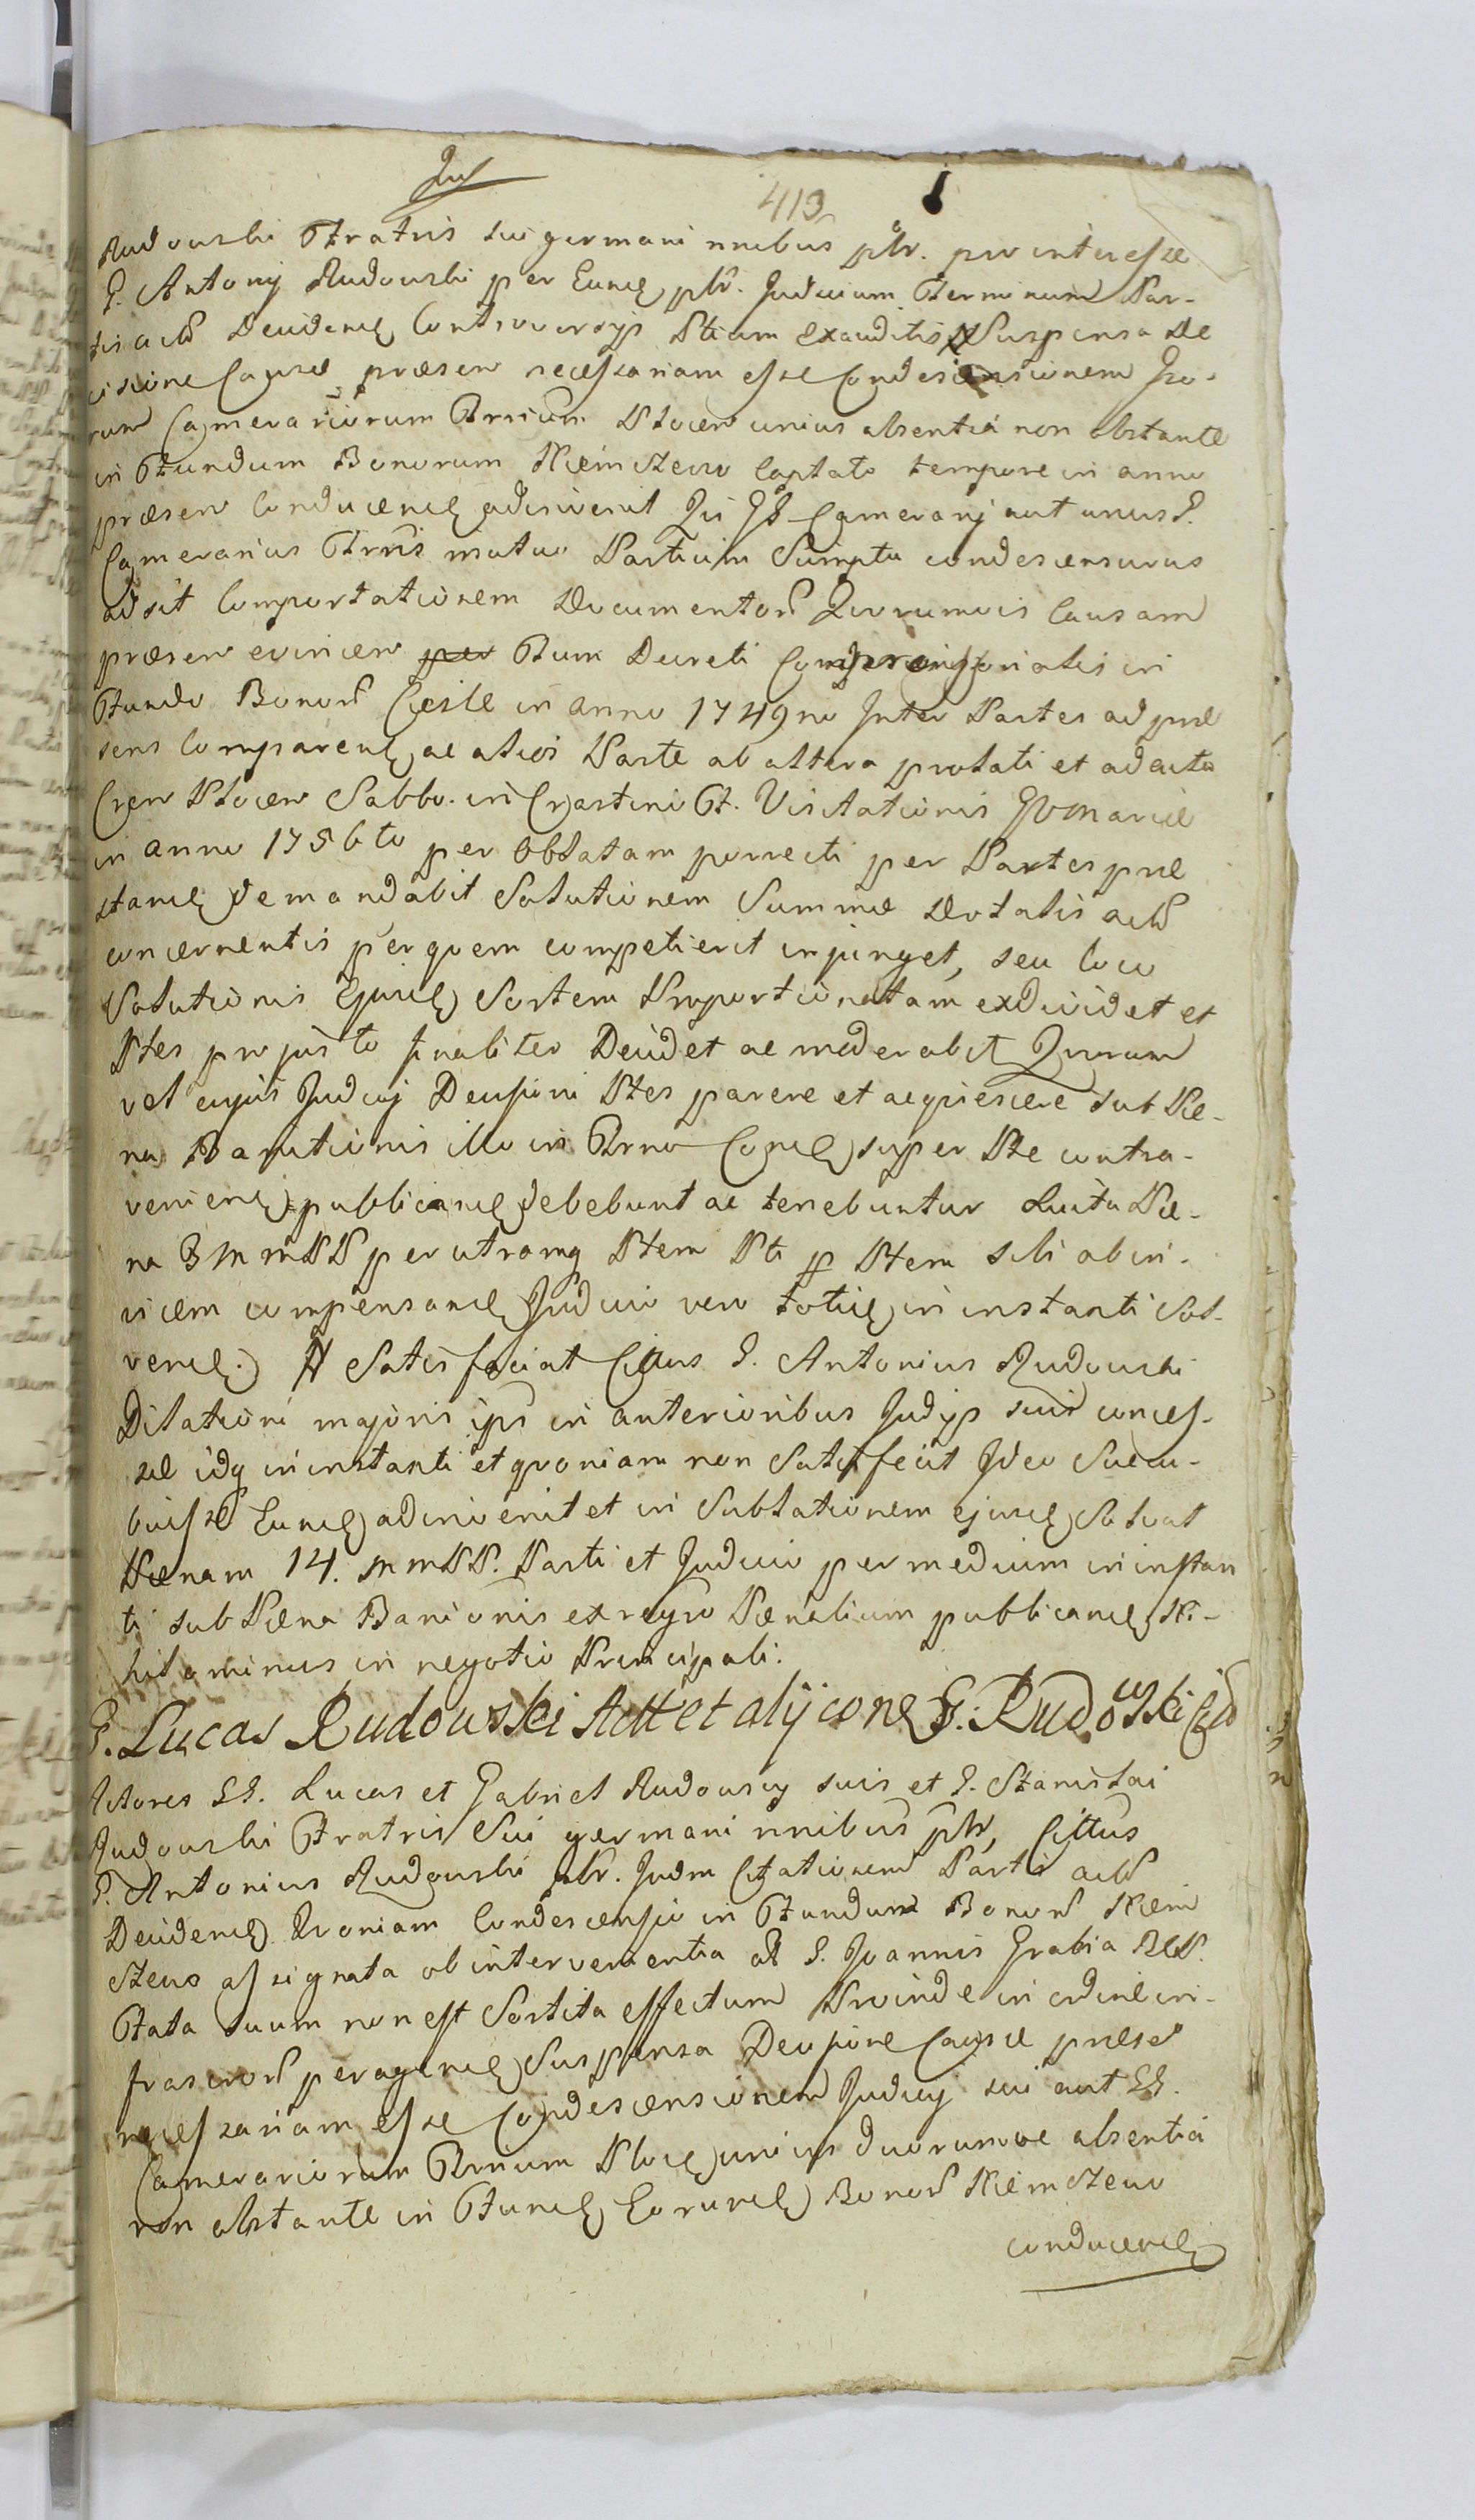 419
Rudowski Fratris sui germani nnibus pbr. pro interesse
G. Antonij Rudowski per Eund pbr. Judicium Terminum Par-
tis actt Decidend Controversijs Ptium exauditis Suspensa De
cisione Causæ præsen necessariam esse Condescensionem
rum Camerariorum Trrium Plocen unius absentiâ non obstante
in Fundum Bonorum Niemczewo Captato tempore in anno
præsen Conducend adinvenit Camerarij aut unus G.
Camerarius Trris mutuo Partium Sumptu condescensurus
adsit Comportationem Documentor Quorumvis Causam
præsen evincen per Tum Decreti Compromissorialis in
Fundo Bonor in Anno 1749no Inter Partes ad præ
sens Comparend ac alios Parte ab altera prolati et ad acta
Cren Plocen Sabbo. in Crastino F. Visitationis Mariæ
in anno 1756to per Oblatam porrecti per Partes præ
stand demandabit Solutionem Summæ Dotalis actt
concernentis per quem competierit injunget, seu loco
Solutionis Ejusd Sortem Proportionatam exdividet et
Ptes pro justo finaliter Decidet ac moderabit Quorum
vel cujus Judicij Decisioni Ptes parere et acquiescere sub Pæ-
na Banitionis illo in Trno Cond super Pte contra-
veniend publicand debebunt ac tenebuntur Luita Pæ-
na 3 M mPP per utramq Ptem Pti p Ptem sibi ab in-
vicem compensand Judicio vero toties in instanti Sol-
vend. Satisfaciat Cittus G. Antonius Rudowski
Dilationi majoris ips in anterioribus Judijs suis conces-
sæ idq in instanti et quoniam non Satisfecit Ideo Sucu-
buisse Eund adinvenit et in Sublationem ejusd Solvat
Pænam 14. M mPP. Parti et Judicio per medium in instan
ti sub Pæna Banionis ex regro Pænalium publicand Ni-
hilominus in negotio Principali.
G. Lucas Rudowski Actt et alij cone G. Rudowski Citt
Actores GG. Lucas et Gabriel Rudowscy suis et G. Stanislai
Rudowski Fratris Sui germani nnibus pbr, Cittus
G. Antonius Rudowski pbr. Judm Citationem Partis actt
Decidend. Quoniam Condescensio in Fundum Bonor Niem
czewo assignata ob interventia ol G. Joannis Grabia
Fata suum non est Sortita effectum Proinde in ordine in-
frascror peragend Suspensa Decisione Causæ præsen
necessariam esse Condescensionem Judicij sui aut GG.
Camerariorum Trrium Ploc unius duorumve absentiâ
non obstante in Fund Eorund Bonor Niemczewo
conducend